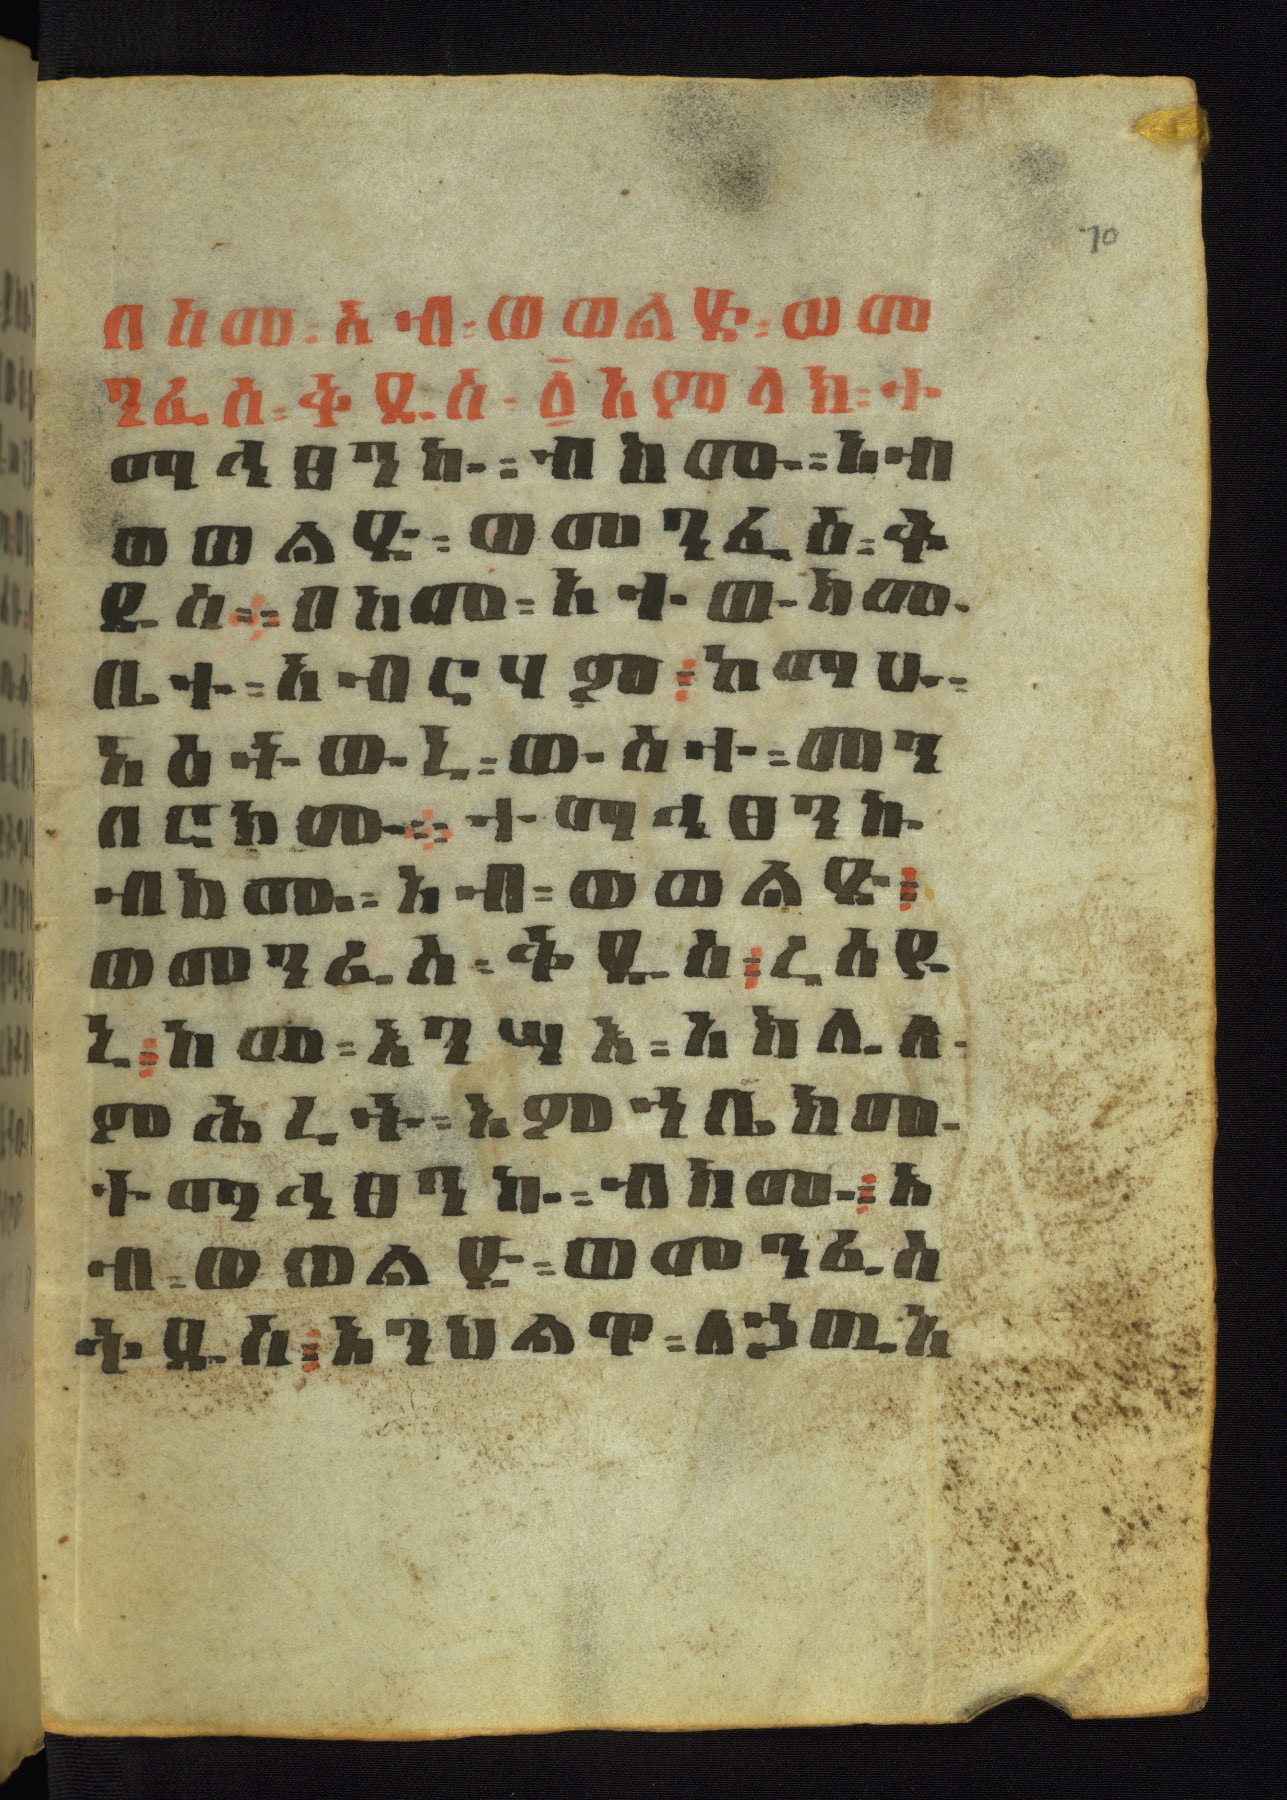 70
በስመ፡ አብ፡ ወወልድ፡ ወመ
ንፈስ፡ ቅዱስ፡ ፩አምላክ፡ ተ
ማኅፀንኩ፡ ብክሙ፡ አብ
ወወልድ፡ ወመንፈስ፡ ቅ
ዱስ፨ በከመ፡ አተውክሙ
ቤተ፡ አብርሃም፡ ከማሁ፡
እዕትውኒ፡ ውስተ፡ መን
በርክሙ፨ ተማኅፀንኩ
ብክሙ፡ አብ፡ ወወልድ፡
ወመንፈስ፡ ቅዱስ፡ ረስዩ
ኒ፡ ከመ፡ እንሣእ፡ አክሊለ
ምሕረት፡ እምኅቤክሙ
ተማኅፀንኩ፡ ብክሙ፡ አ
ብ፡ ወወልድ፡ ወመንፈስ
ቅዱስ፡ ለኃጢአ